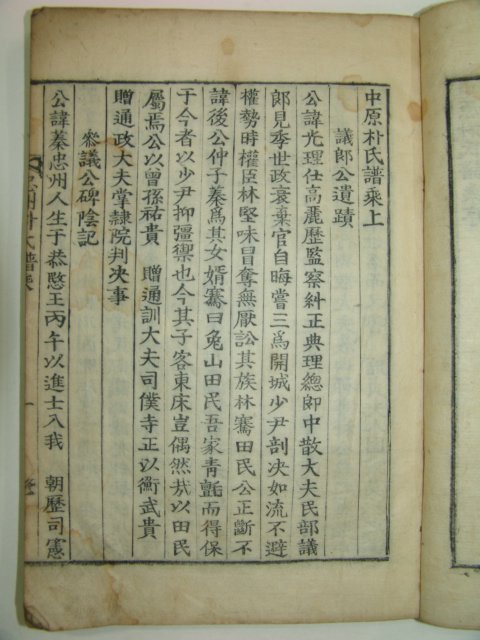 中原朴氏譜乘上
議郎公遺蹟
公諱光理仕高麗歷監察糾正典理緫郎中散大夫民部議
郎見季世政衰棄官自晦嘗三爲開城少尹剖决如流不避
權勢時權臣林堅味冒奪無厭訟其族林蔿田民公正斷不
諱後公仲子蓁爲其女婿蔿曰兔山田民吾家青氈而得保
于今者以少尹抑彊禦也今其子客東床豈偶然㢤以田民
屬焉公以曾孫祐貴 贈通訓大夫司僕寺正以衡武貴
贈通政大夫掌隷院判决事
叅議公碑陰記
公諱蓁忠州人生于恭愍王丙午以進士入我 朝歷司憲
州朴氏譜乘
一